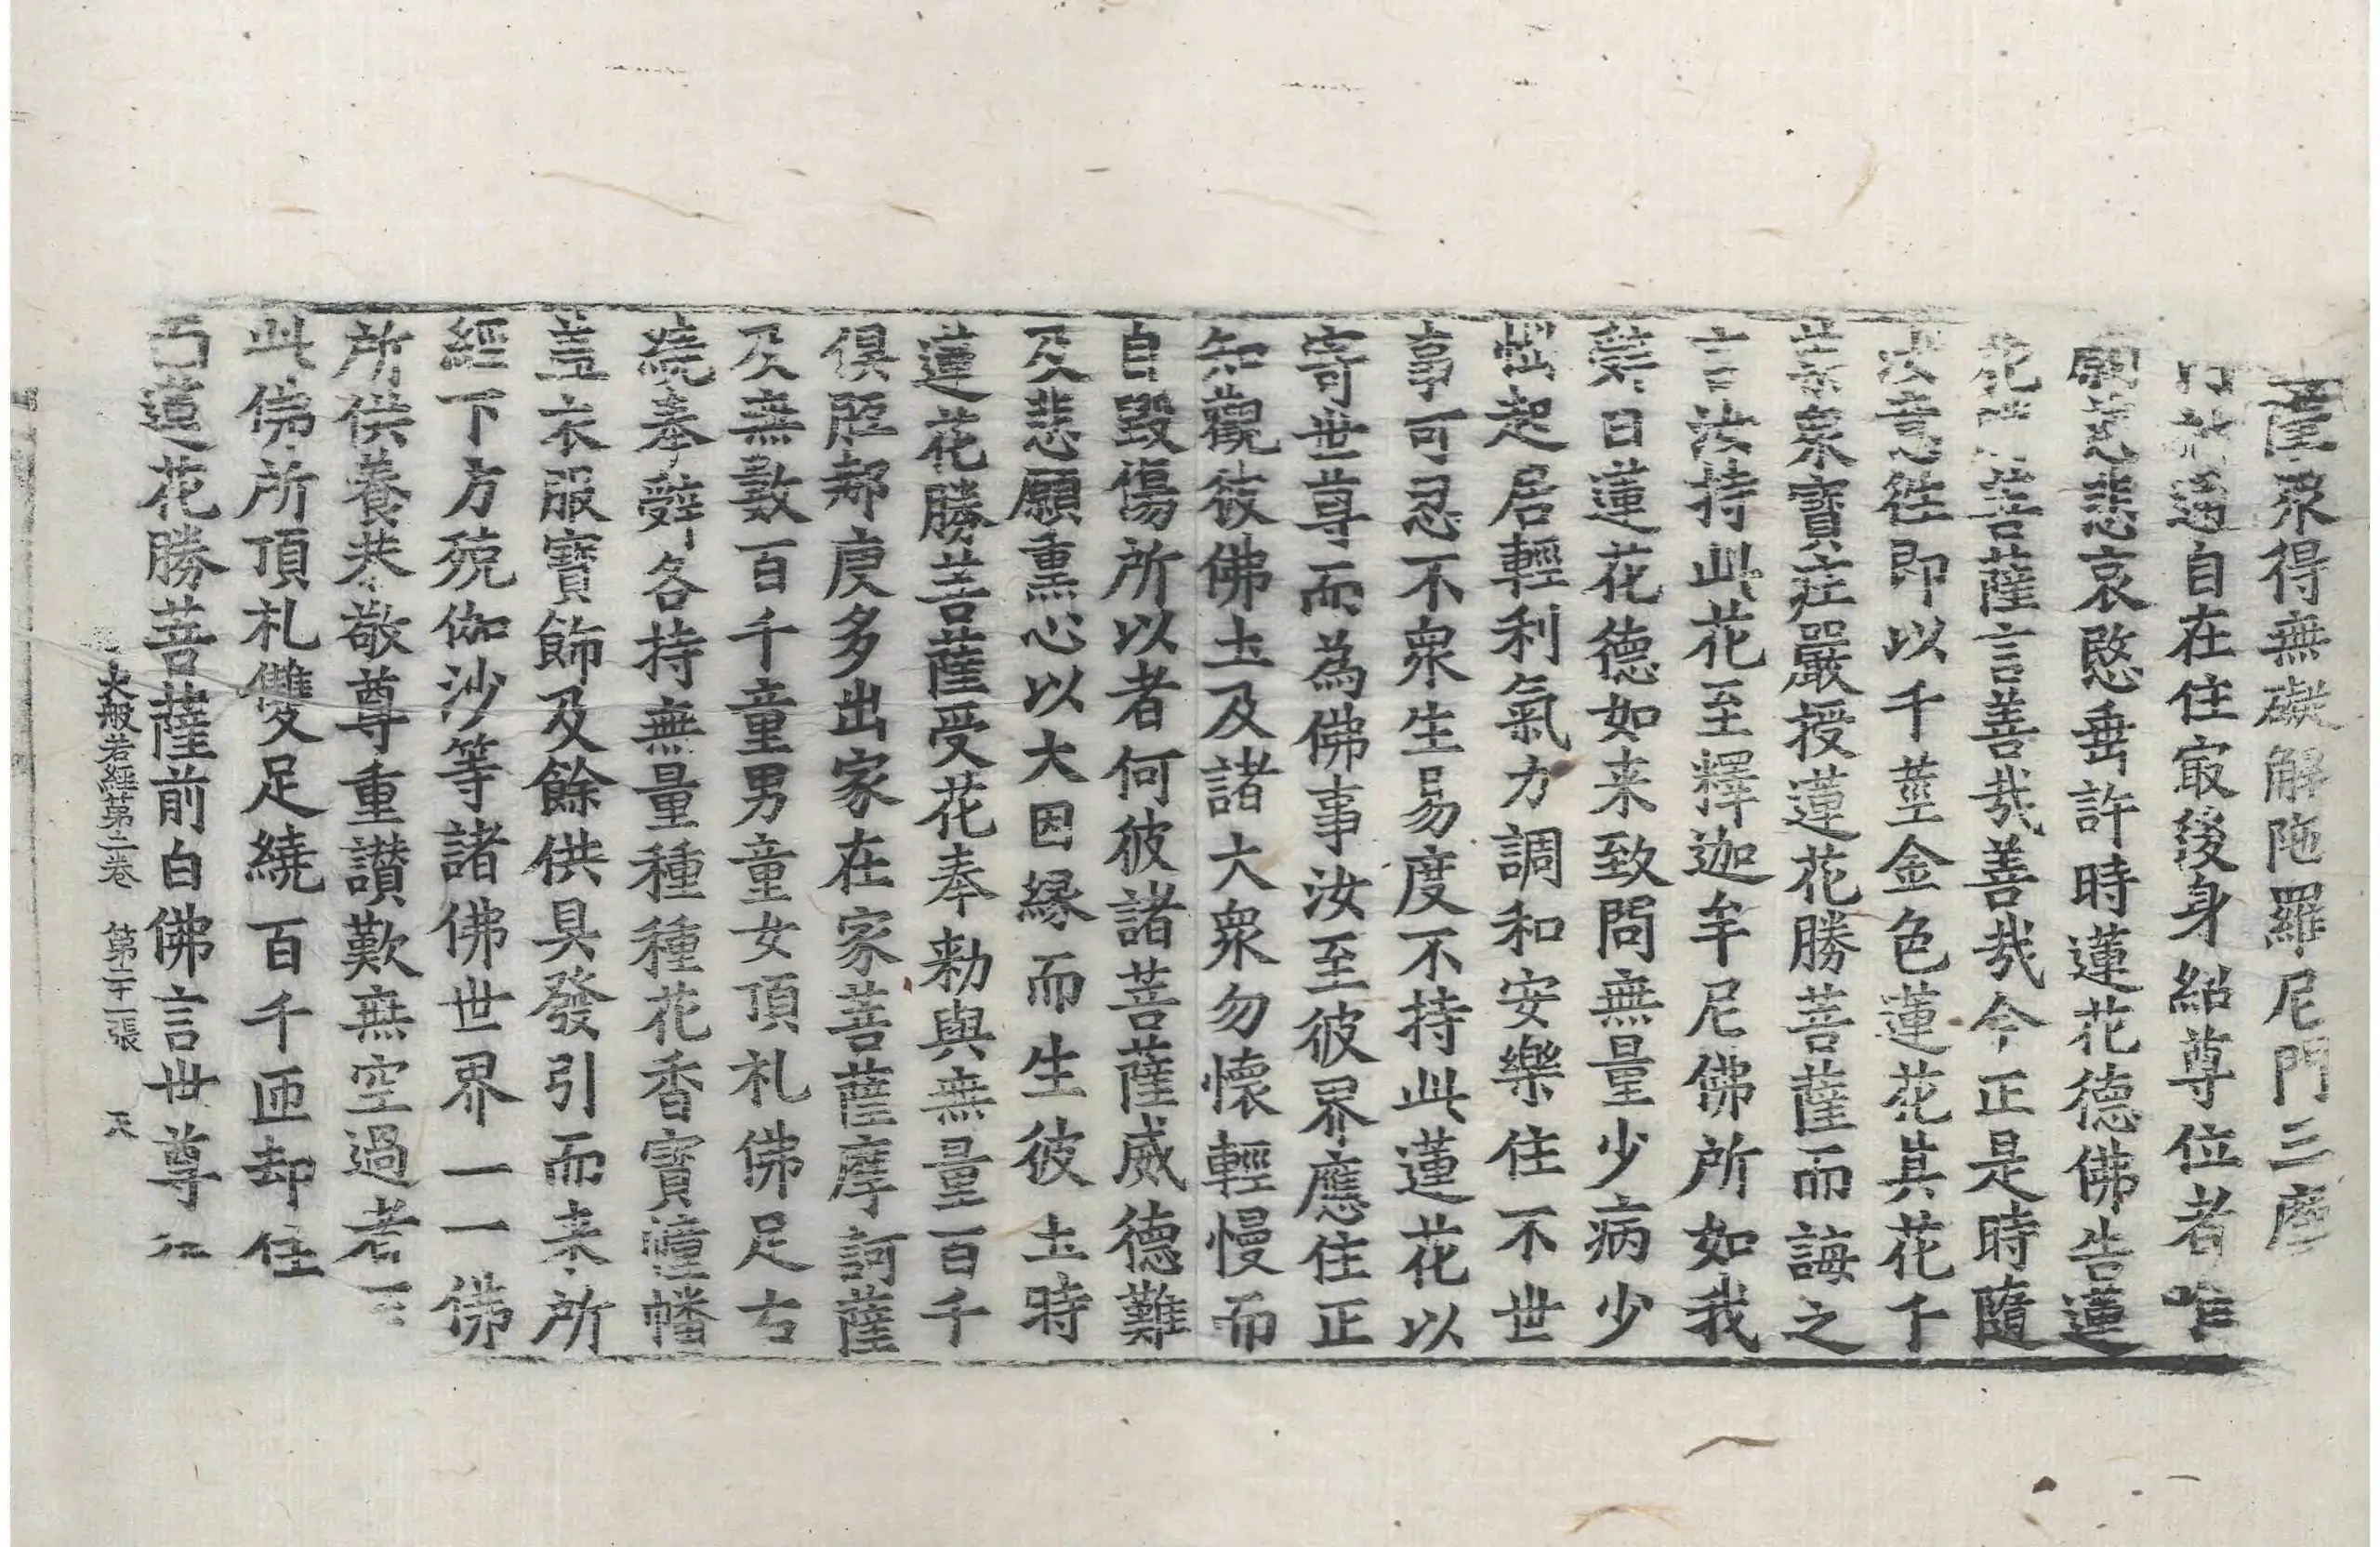 薩衆得無礙解陁羅尼門三摩
門神通自在住㝡後身紹尊位者唯
願慈悲哀愍垂許時蓮花德佛告蓮
花勝菩薩言善哉善哉今正是時隨
汝意徃即以千莖金色蓮花其花千
葉衆寶莊嚴授蓮花勝菩薩而誨之
言汝持此花至釋迦牟尼佛所如我
辭曰蓮花德如来致問無量少病少
惱起居輕利氣力調和安樂住不世
事可忍不衆生易度不持此蓮花以
寄世尊而為佛事汝至彼界應住正
知觀彼佛土及諸大衆勿懷輕慢而
自毀傷所以者何彼諸菩薩威德難
及悲願熏心以大因緣而生彼土時
蓮花勝菩薩受花奉勑與無量百千
俱胝那庾多出家在家菩薩摩訶薩
及無數百千童男童女頂礼佛足右
繞奉辭各持無量種種花香寶幢幡
盖衣服寶飾及餘供具發引而来所
經下方殑伽沙等諸佛世界一一佛
所供養恭敬尊重讃歎無空過者
此佛所頂礼雙足繞百千匝却住
蓮花勝菩薩前白佛言世尊
大般若經第二卷 第二十一張 天